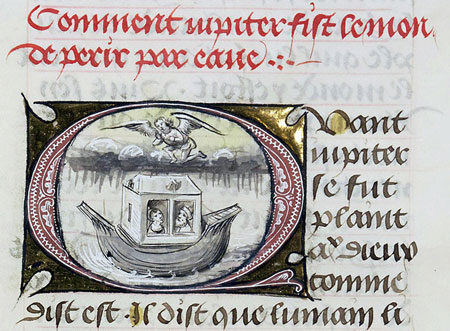 Comment iupiter fist le mon
de perir par eaue .:.
Quant
iupiter
se fut
plaint
aux dieux
comme
dist est. Il dist que lumain li